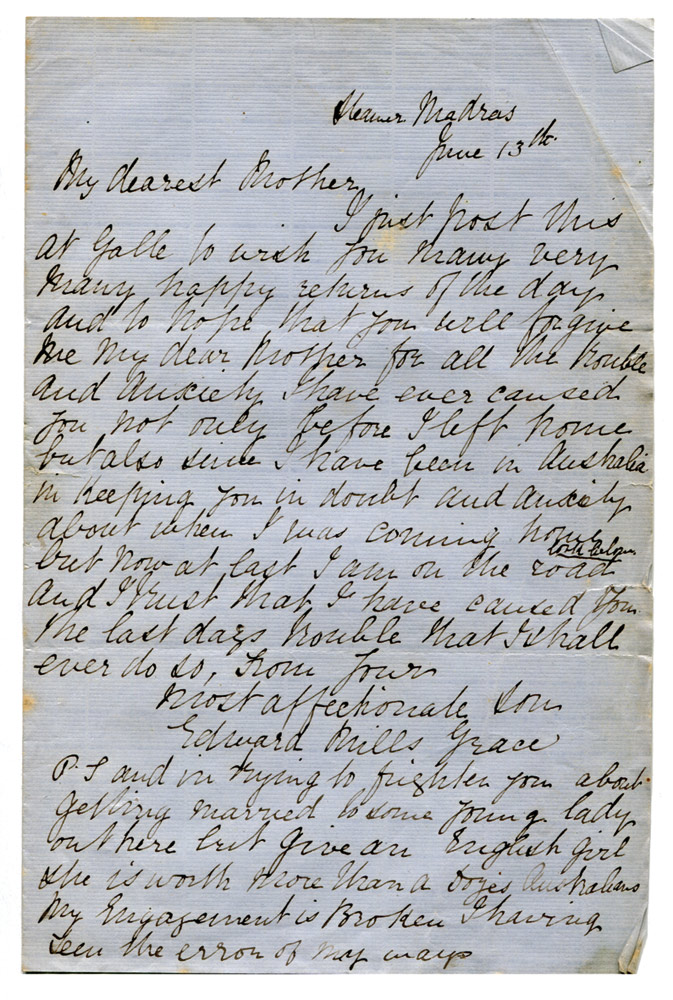 Steamer Madras
June 13th.
My dearest Mother
I just post this
at Galle to wish you many very
many happy returns of the day
and to hope that you will forgive
me my dear Mother for all the trouble
and anxiety I have ever caused
you not only before I left home
but also since I have been in Australia
in keeping you in doubt and anxiety
about when I was coming home
but now at last I am on the road
and I trust that I have caused you
the last days trouble that I shall
ever do so, from your
most affectionate Son
Edward Mills Grace
P.S and in trying to frighten you about
getting married to some young lady
out here but give an English girl
she is worth more than a Australians
My Engagement is Broken I having
seen the error of my ways